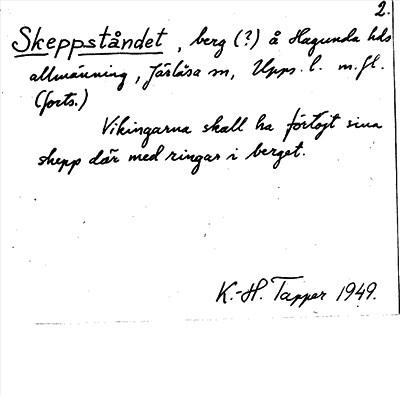 2.
Skeppståndet, berg (?) å Hagunda hds
allmänning, Järlåsa sn, Upps. l. m.fl.
(forts.)
Vikingarna skall ha förtöjt sina
skepp där med ringar i berget.
K.-H. Tapper 1949.